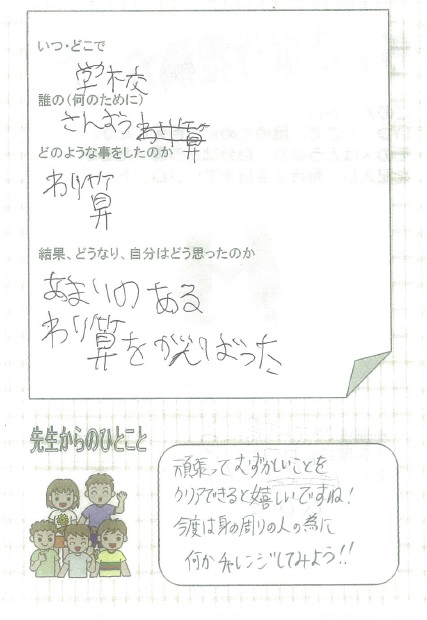 いつ・どこで
学校
誰の(何のために)
さんすう わり算
どのような事をしたのか
わり算
結果、どうなり、自分はどう思ったのか
あまりのある
わり算をがんばった
先生からのひとこと
頑張ってむずかしいことを
クリアできると嬉しいですね!
今度は身の周りの人の為に
何かチャレンジしてみよう!!